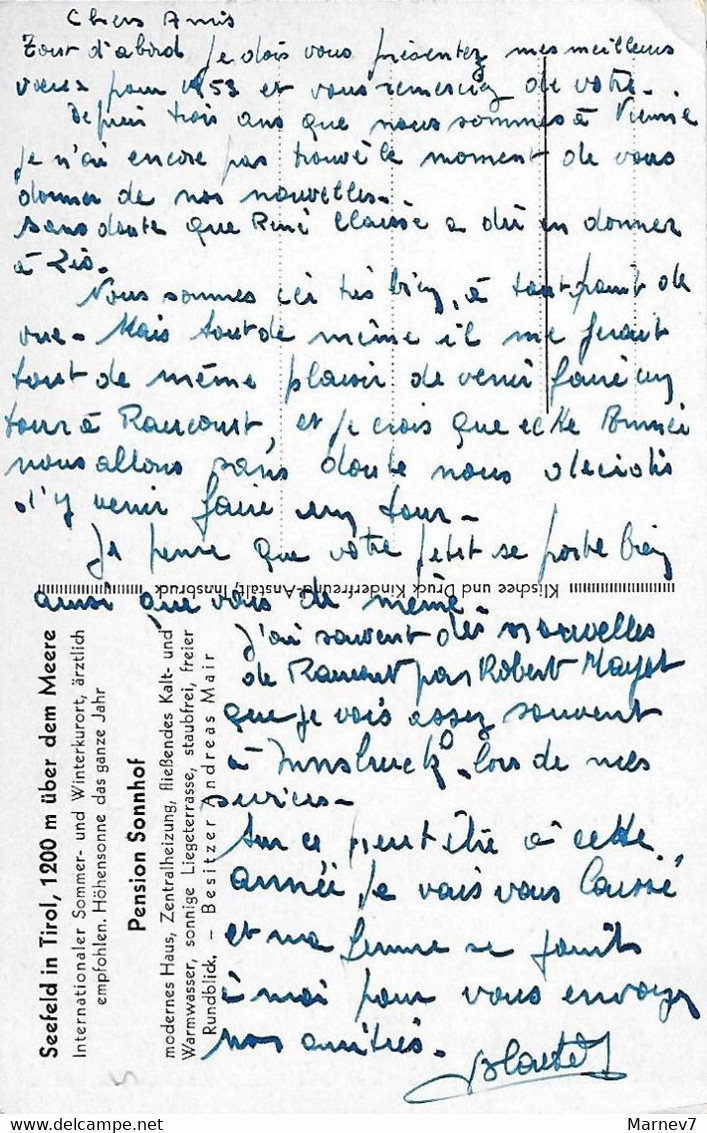 Chers Amis
Tout d'abord je dois vous présentez mes meilleurs
voeux pour 1953 et vous remerciez de votre.
Depuis trois ans que nous sommes à Vienne
je n'ai encore pas trouvé le moment de vous
donner de nos nouvelles.
Sans doute que René Clausse a dû en donner
à
Nous sommes ici très bien, à tout point de
vue. Mais tout de même il me ferait
tout de même plaisir de venir faire un
tour à Raucourt, et je crois que cette Année
nous allons sans doute nous décidés
d'y venir faire un tour.
Je pense que votre petit se porte bien
ainsi que vous de même.
J'ai souvent des nouvelles
de Raucourt par Robert Mayot
que je vois assez souvent
à Innsbruck, lors de mes
services.
Sur ce peut être à cette
année je vais vous laissé
et ma femme se joints
à moi pour vous envoyez
nos amitiés.
Klischee und Druck Kinderfreund-Anstalt, Innsbruck
Seefeld in Tirol, 1200 m über dem Meere
Internationaler Sommer- und Winterkurort, ärztlich
empfohlen. Höhensonne das ganze Jahr
Pension Sonnhof
modernes Haus, Zentralheizung, fließendes Kalt- und
Warmwasser, sonnige Liegeterrasse, staubfrei, freier
Rundblick. – Besitzer Andreas Mair
Marnev7